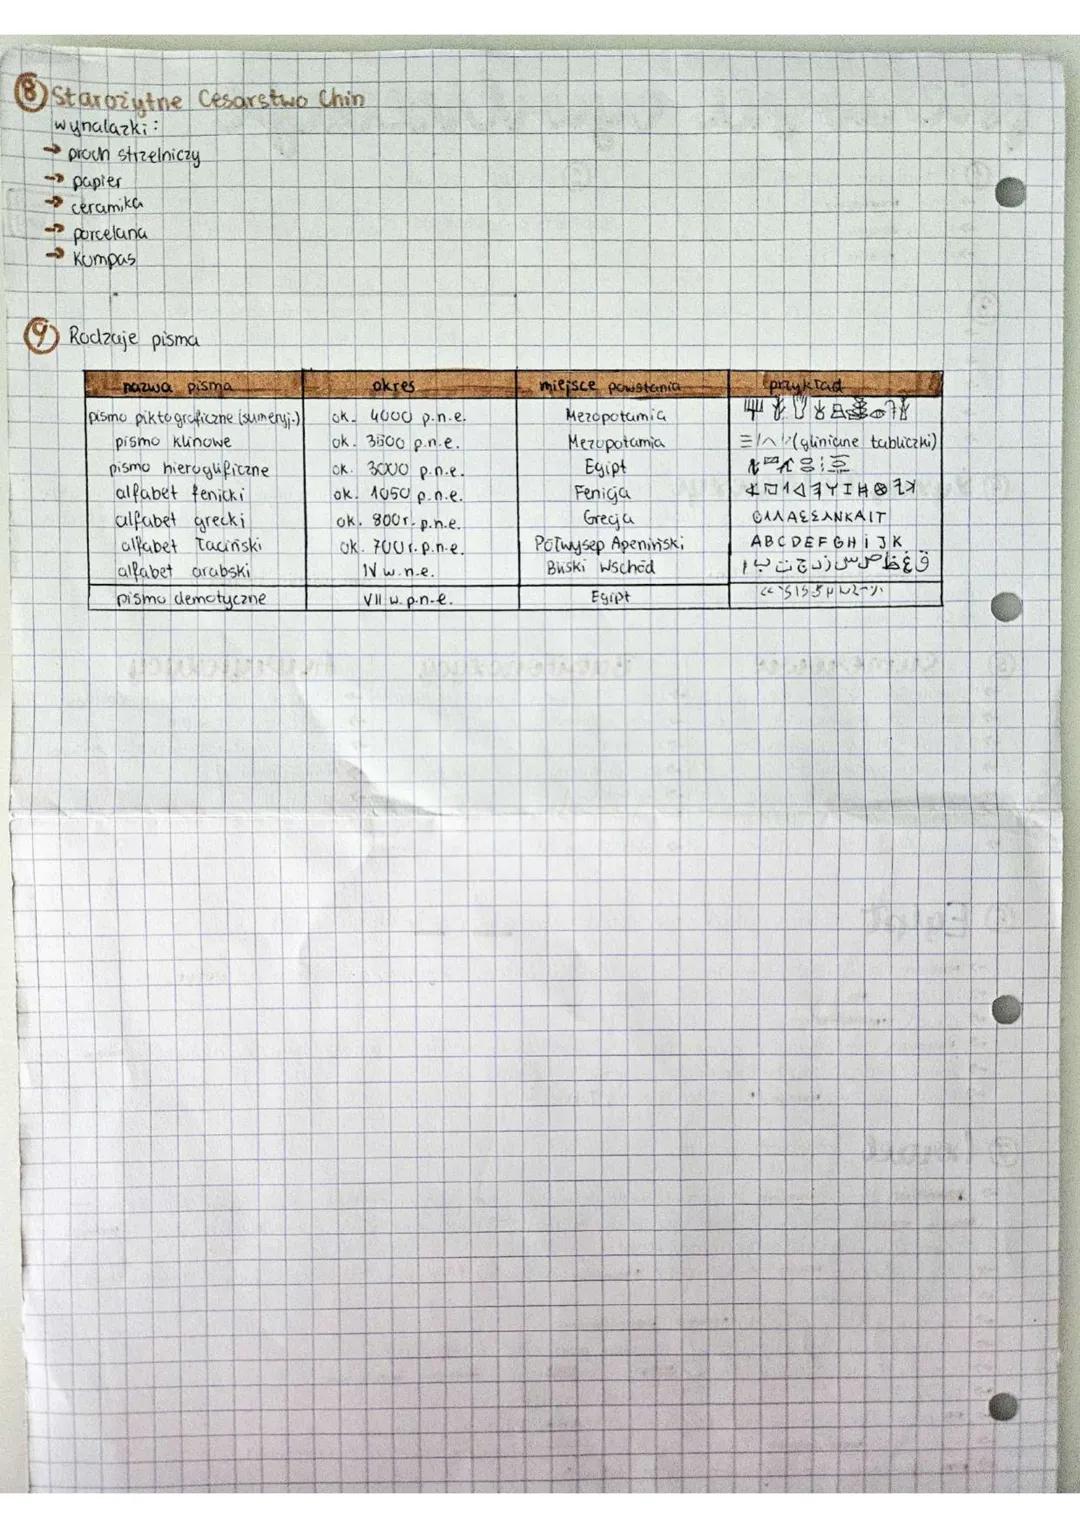 8 Starożytne Cesarstwo Chin
wynalazki:
→ proch strzelniczy
→ papier
→ ceramika
→ porcelana
→ kompas
9 Rodzaje pisma
nazwa pisma okres miejsce powstania przykład
pismo piktograficzne (sumeryj.) ok. 4000 p.n.e. Mezopotamia
pismo klinowe ok. 3500 p.n.e. Mezopotamia (gliniane tabliczki)
pismo hieroglificzne ok. 3000 p.n.e. Egipt
alfabet fenicki ok. 1050 p.n.e. Fenicja
alfabet grecki ok. 800r. p.n.e. Grecja
alfabet łaciński ok. 700r. p.n.e. Półwysep Apeniński ABCDEFGHiJK
alfabet arabski IV w.n.e. Bliski Wschód
pismo demotyczne VII w. p.n.e. Egipt